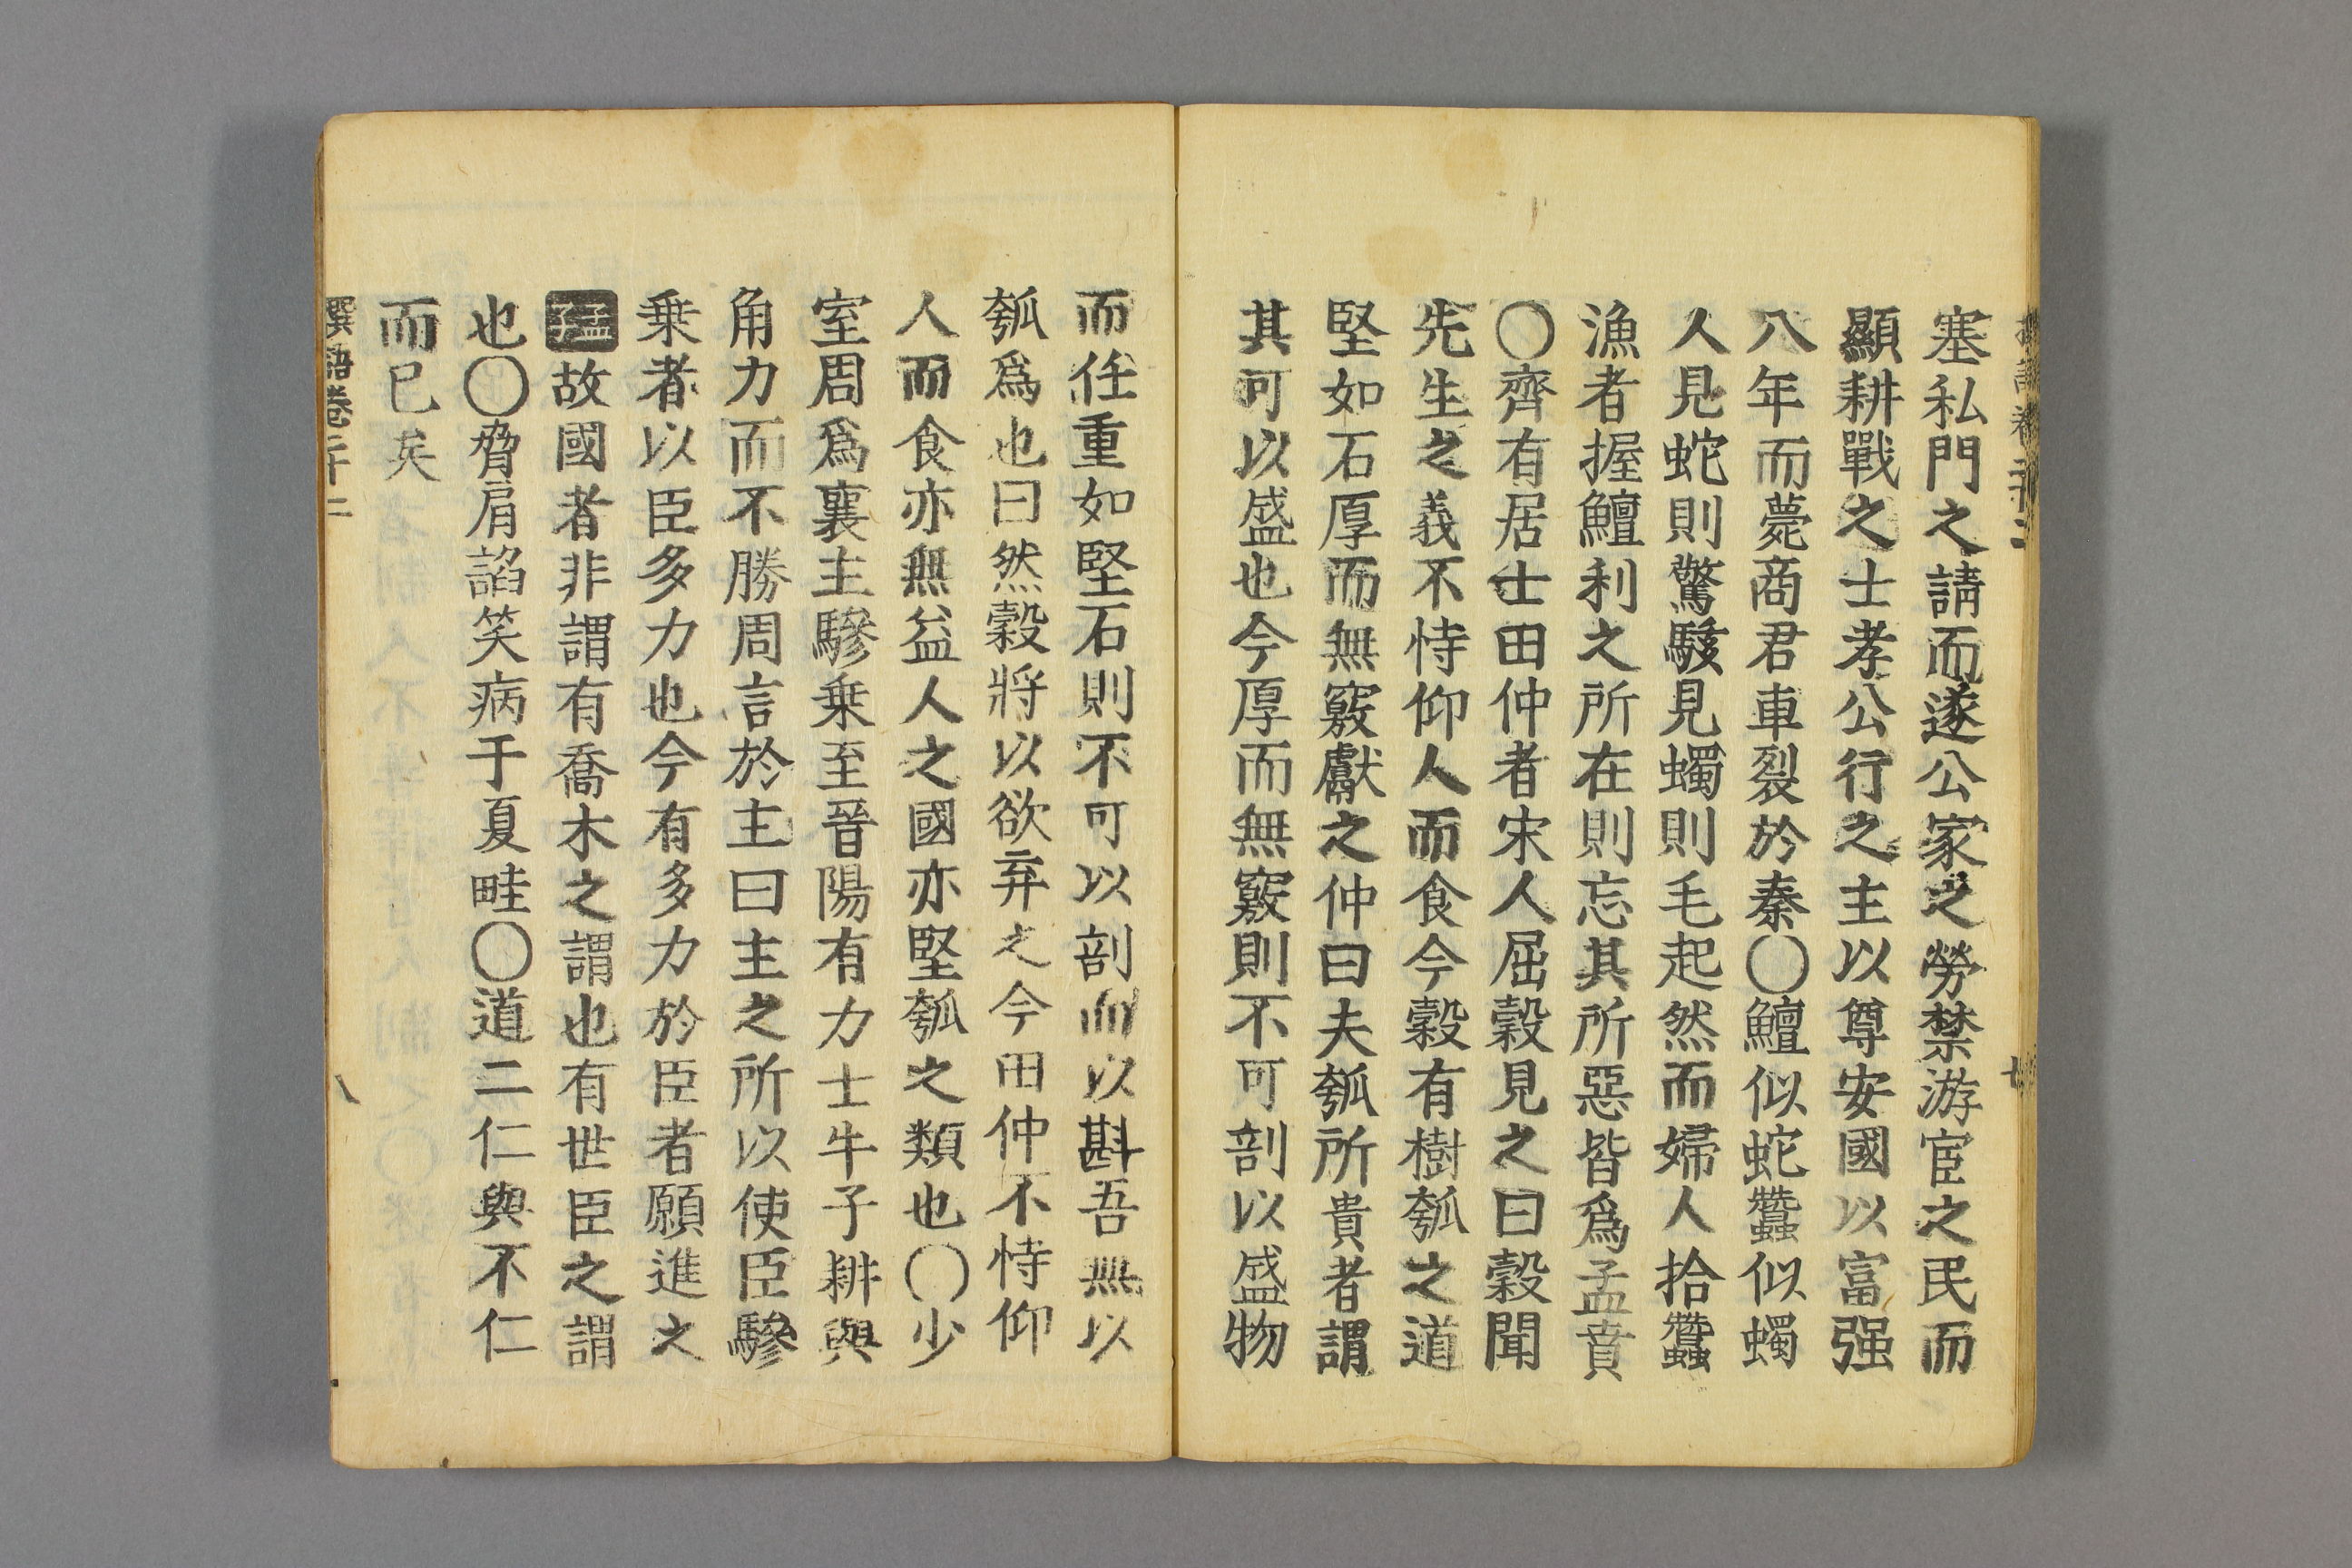 塞私門之請而遂公家之勞禁游宦之民而
顯耕戰之士孝公行之主以尊安國以富强
八年而薨商君車裂於秦〇鱣似蛇蠶似蠋
人見蛇則驚駭見蠋則毛起然而婦人拾蠶
漁者握鱣利之所在則忘其所惡皆爲孟賁
〇齊有居士田仲者宋人屈穀見之曰穀聞
先生之義不恃仰人而食今穀有樹瓠之道
堅如石厚而無竅獻之仲曰夫瓠所貴者謂
其可以盛也今厚而無竅則不可剖以盛物
而任重如堅石則不可以剖而以斟吾無以
瓠爲也曰然穀將以欲弃之今田仲不恃仰
人而食亦無益人之國亦堅瓠之類也〇少
室周爲襄主驂乗至晉陽有力士牛子耕與
角力而不勝周言於主曰主之所以使臣驂
乗者以臣多力也今有多力於臣者願進之
孟故國者非謂有喬木之謂也有世臣之謂
也〇脅肩諂笑病于夏畦〇道二仁與不仁
而已矣
卷二十二
八